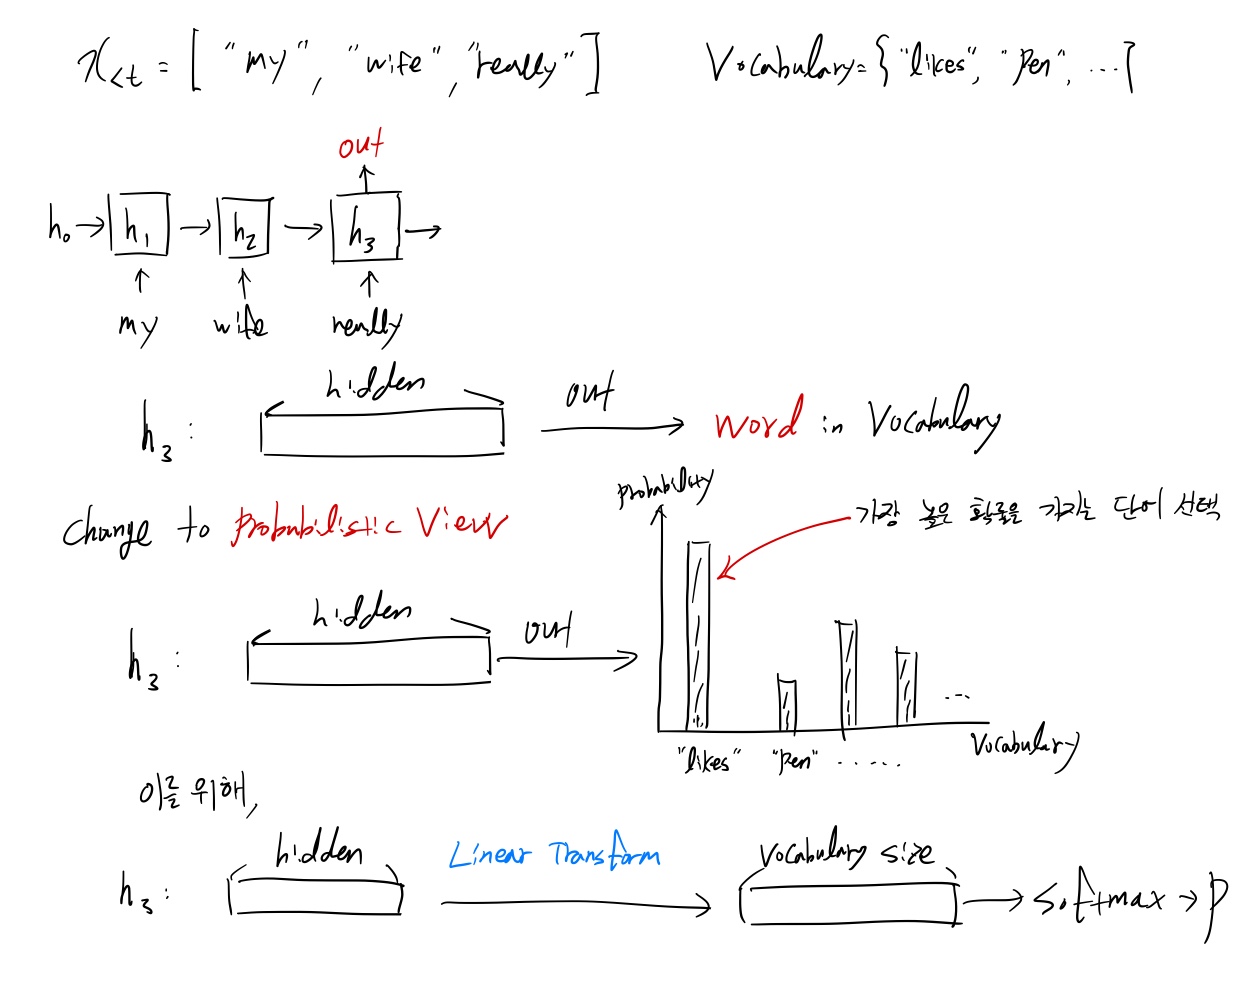 x<t = [ "my", "wife", "really" ] Vocabulary = { "likes", "Pen", ... {
out
h₀ → h₁ → h₂ → h₃ →
my wife really
hidden
h₃ : out → word in Vocabulary
Probability
Change to Probabilistic View
가장 높은 확률을 가지는 단어 선택
hidden
h₃ : out
...
"likes" "Pen" ...... Vocabulary
이를 위해,
hidden Linear Transform Vocabulary size
h₃ : → softmax → P